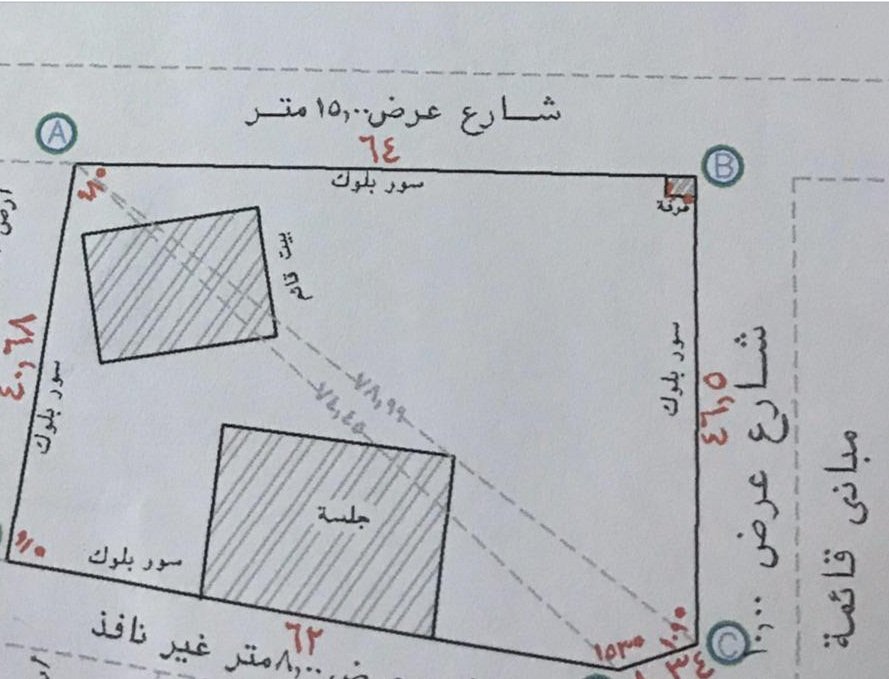 شارع عرض ١٥,٠٠ متر
A
٦٤
B
سور بلوك
غرفة
بيت قائم
٤٠,٦٨
سور بلوك
سور بلوك
٤٦,٥
شارع عرض ١٠,٠٠
مباني قائمة
٧٨,٩٩
٧٤,٤٥
جلسة
سور بلوك
٦٢
٨,٠٠ متر غير نافذ
١٥٣°
١٠٩°
C